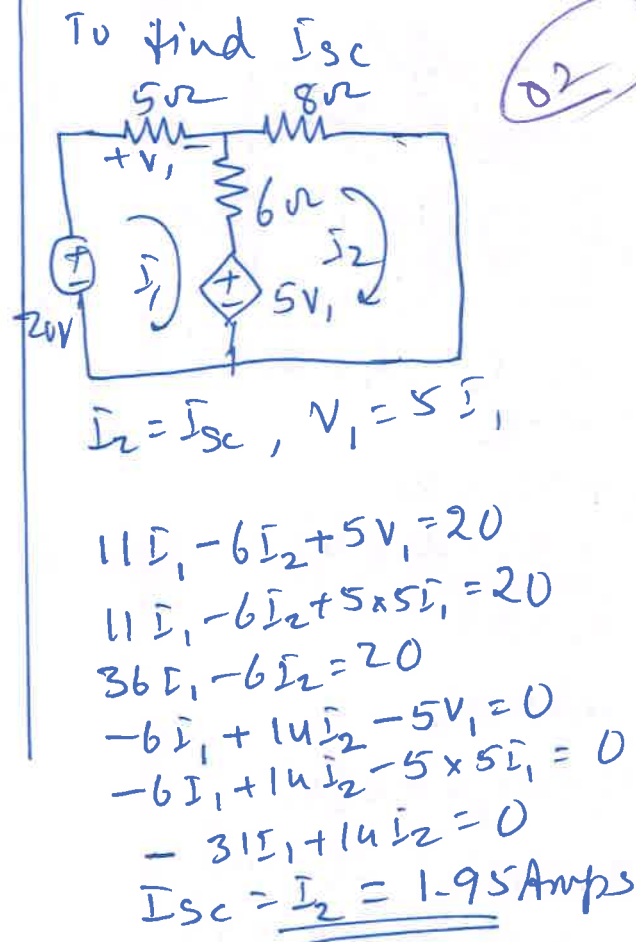 To find Isc
02
5Ω 8Ω
+ V₁ −
6Ω
I₁ I₂
+ −
+ − 5V₁
20V
I₂ = Isc , V₁ = 5I₁
11I₁ - 6I₂ + 5V₁ = 20
11I₁ - 6I₂ + 5x5I₁ = 20
36I₁ - 6I₂ = 20
-6I₁ + 14I₂ - 5V₁ = 0
-6I₁ + 14I₂ - 5 x 5I₁ = 0
- 31I₁ + 14I₂ = 0
Isc = I₂ = 1.95 Amps